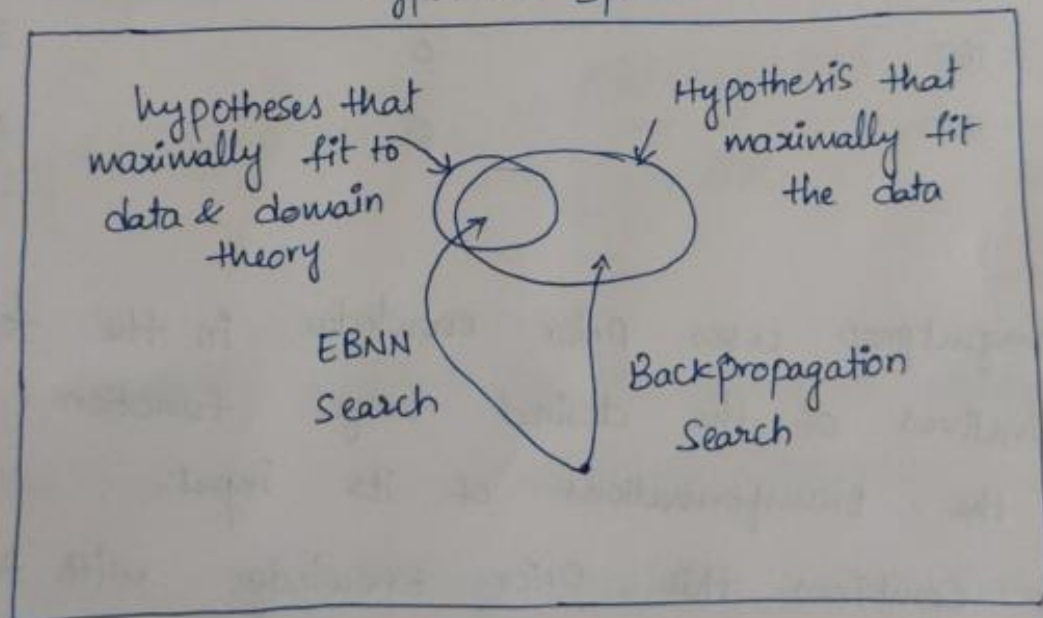 hypotheses that
maximally fit to
data & domain
theory
Hypothesis that
maximally fit
the data
EBNN
Search
Backpropagation
Search